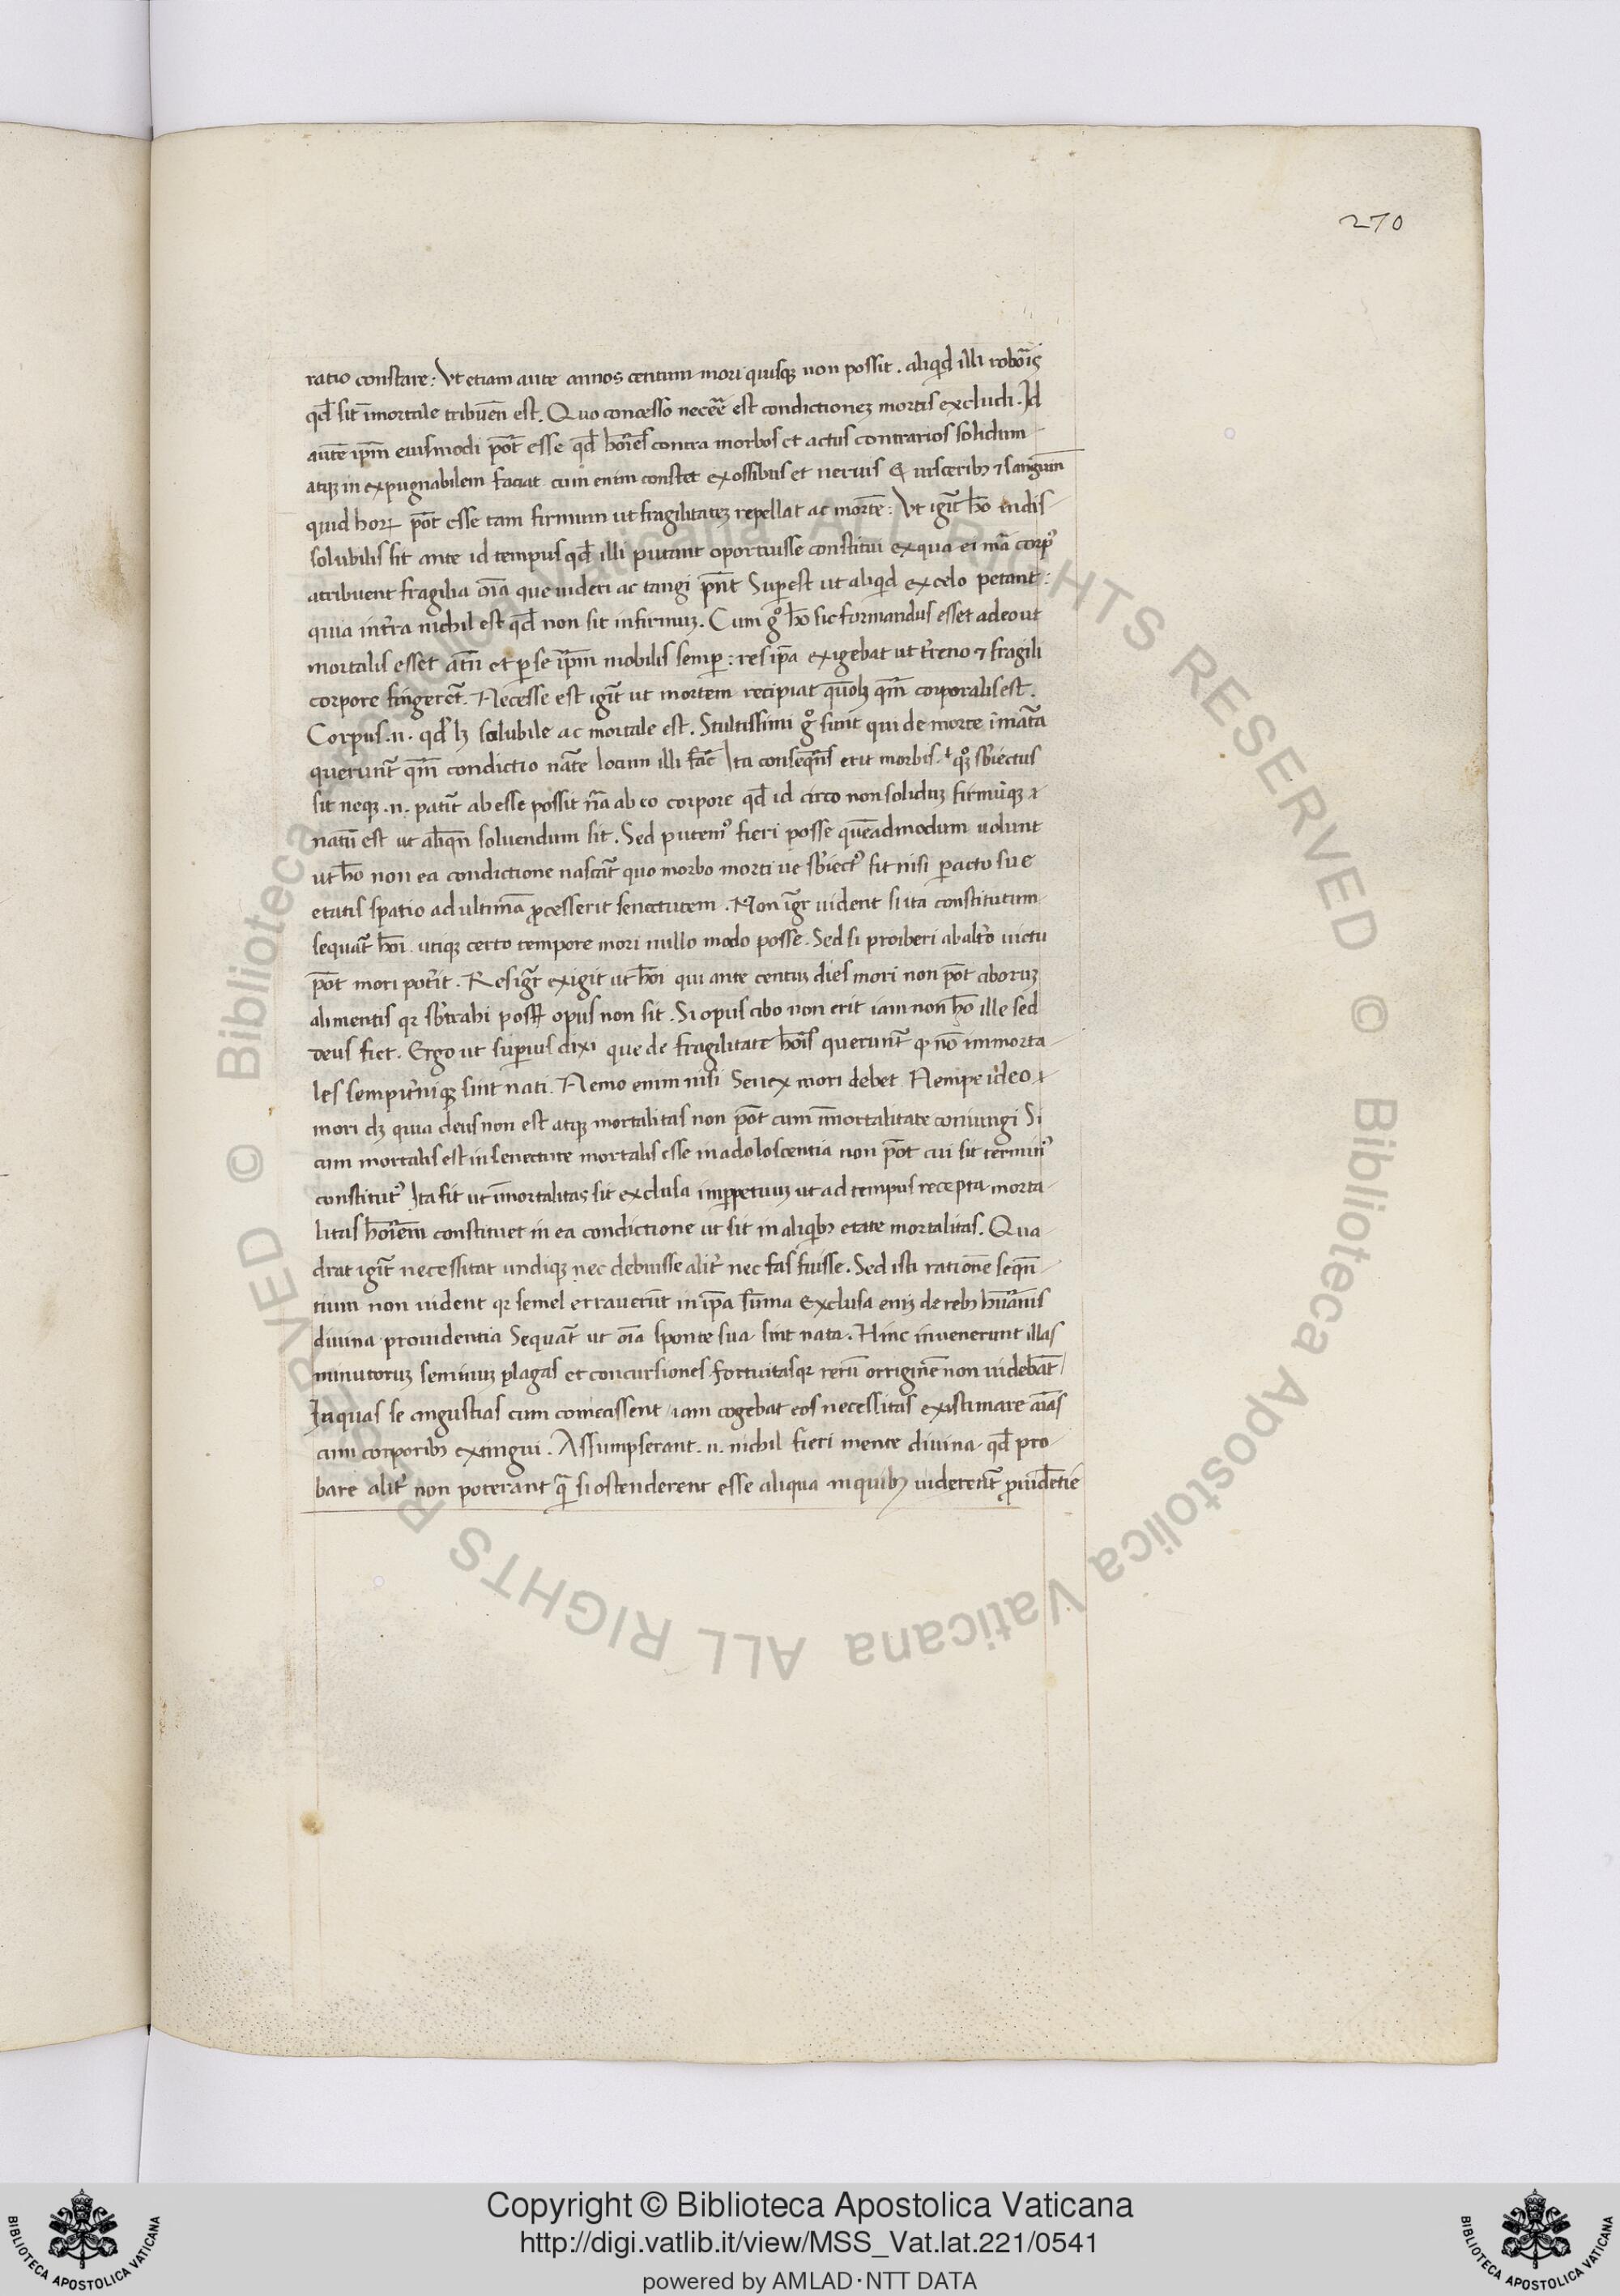 270
ratio constare: Vt etiam ante annos centum mori quisqꝫ non possit. aliqͥd illi roboris
qd̄ sit īmortale tribuen̄ est. Quo concesso necēe est condictionez mortis excludi. Id
autē ip̄m eiusmodi pōt esse qd̄ hoīes contra morbos et actus contrarios solidum
atqꝫ in expugnabilem faciat cum enim constet ex ossibus et neruis & uisceribꝫ ⁊ sanguīe
quid horꝝ pōt esse tam firmum ut fragilitatez repellat ac mortē: Vt igit̄ hō indis-
solubilis sit ante id tempus qd̄ illi putant oportuisse constitui ex qua ei mā corpꝰ
atribuent fragilia oīa que uideri ac tangi pn̄t Suꝑest ut aliqͥd ex celo petant:
quia in tr̄ra nichil est qd̄ non sit infirmuz. Cum gͦ hō sic formandus esset adeo ut
mortalis esset at̄n et ꝑ se ip̄m mobilis semꝑ: res ip̄a exigebat ut tr̄reno ⁊ fragili
corpore fingeret̄. Necesse est igit̄ ut mortem recipiat qm̄ corporalis est.
Corpus .n. qd̄ lꝫ solubile ac mortale est. Stultissimi gͦ sunt qui de morte īmat̄a
querunt̄ qm̄ condictio nat̄e locum illi fac̄ Ita conseqn̄s erit morbis qͦqꝫ sb̄iectus
sit neqꝫ .n. patit̄ ab esse possit nr̄a ab eo corpore qd̄ id circo non soliduz firmūqꝫ ⁊
natū est ut aliqn̄ soluendum sit. Sed putemꝰ fieri posse quēadmodum uolunt
ut hō non ea condictione nascat̄ quo morbo morti ue sb̄iectꝰ sit nisi ꝑacto sue
etatis spatio ad ultimā ꝓcesserit senectutem. Non igr̄ uident si ita constitutum
sequat̄ hoī utiqꝫ certo tempore mori nullo modo posse. Sed si proiberi ab altr̄o uictu
pōt mori potr̄it. Res igr̄ exigit ut hoī qui ante centuz dies mori non pōt ciboruz
alimentis qꝫ sb̄trahi poss̄t opus non sit. Si opus cibo non erit iam non hō ille sed
deus fiet. Ergo ut suꝑius dixi que de fragilitate hoīs querunt̄ qͥ nō immorta-
les sempit̄niqꝫ sint nati. Nemo enim nisi Senex mori debet Nempe ideo ⁊
mori dꝫ quia deus non est atqꝫ mortalitas non pōt cum īmortalitate coniungi Si
cum mortalis est in senectute mortalis esse in adoloscentia non pōt cui sit terminꝰ
constitutꝰ Ita fit ut īmortalitas sit exclusa imꝑpetuuz ut ad tempus recepta morta-
litas hoīem constituet in ea condictione ut sit in aliqͥbꝫ etate mortalitas. Qua-
drat igit̄ necessitat undiqꝫ nec debuisse alit̄ nec fas fuisse. Sed isti rationē seqn̄-
tium non uident qꝫ semel errauerūt in ip̄a sūma Exclusa eniz de rebꝫ hūanis
diuina prouidentia Sequat̄ ut oīa sponte sua sint nata. Hinc inuenerunt illas
minutoruz seminuz plagas et concursiones fortuitasqꝫ rerū orriginē non uidebāt
In quas se angustias cum conieissent iam cogebat eos necessitas existimare aīas
cum corporibꝫ extingui. Assumpserant .n. nichil fieri mente diuina qd̄ pro-
bare alit̄ non poterant qͣ si ostenderent esse aliqua in quibꝫ uiderent̄ ꝓuidētie
© Biblioteca Apostolica Vaticana ALL RIGHTS RESERVED © Biblioteca Apostolica Vaticana ALL RIGHTS RESERVED
BIBLIOTECA APOSTOLICA VATICANA
Copyright © Biblioteca Apostolica Vaticana
http://digi.vatlib.it/view/MSS_Vat.lat.221/0541
powered by AMLAD·NTT DATA
BIBLIOTECA APOSTOLICA VATICANA